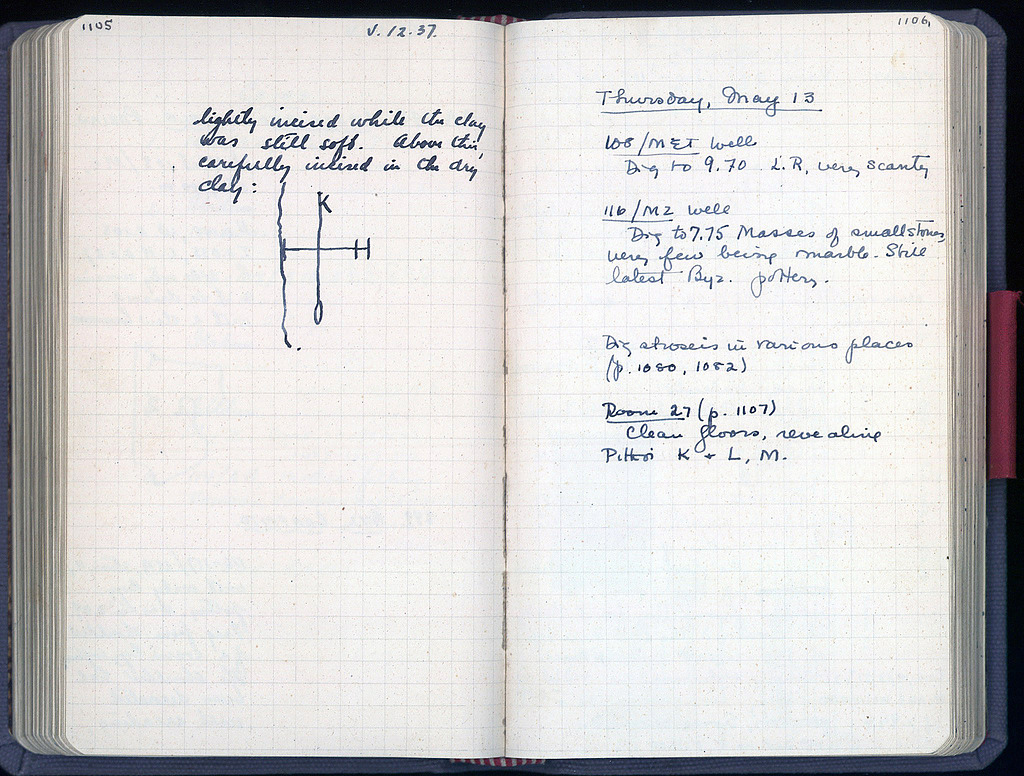 1105
V. 12. 37.
lightly incised while the clay
was still soft. Above this,
carefully incised in the dry
clay :
K
H
1106
Thursday, May 13
well
Dig to 9.70 L.R, very scanty
well
Dig to 7.75 Masses of small stones
very few being marble. Still
latest Byz. pottery.
Dig stroseis in various places
(p. 1080, 1082)
Room 27 (p. 1107)
Clean floors, revealing
Pithoi K + L, M.